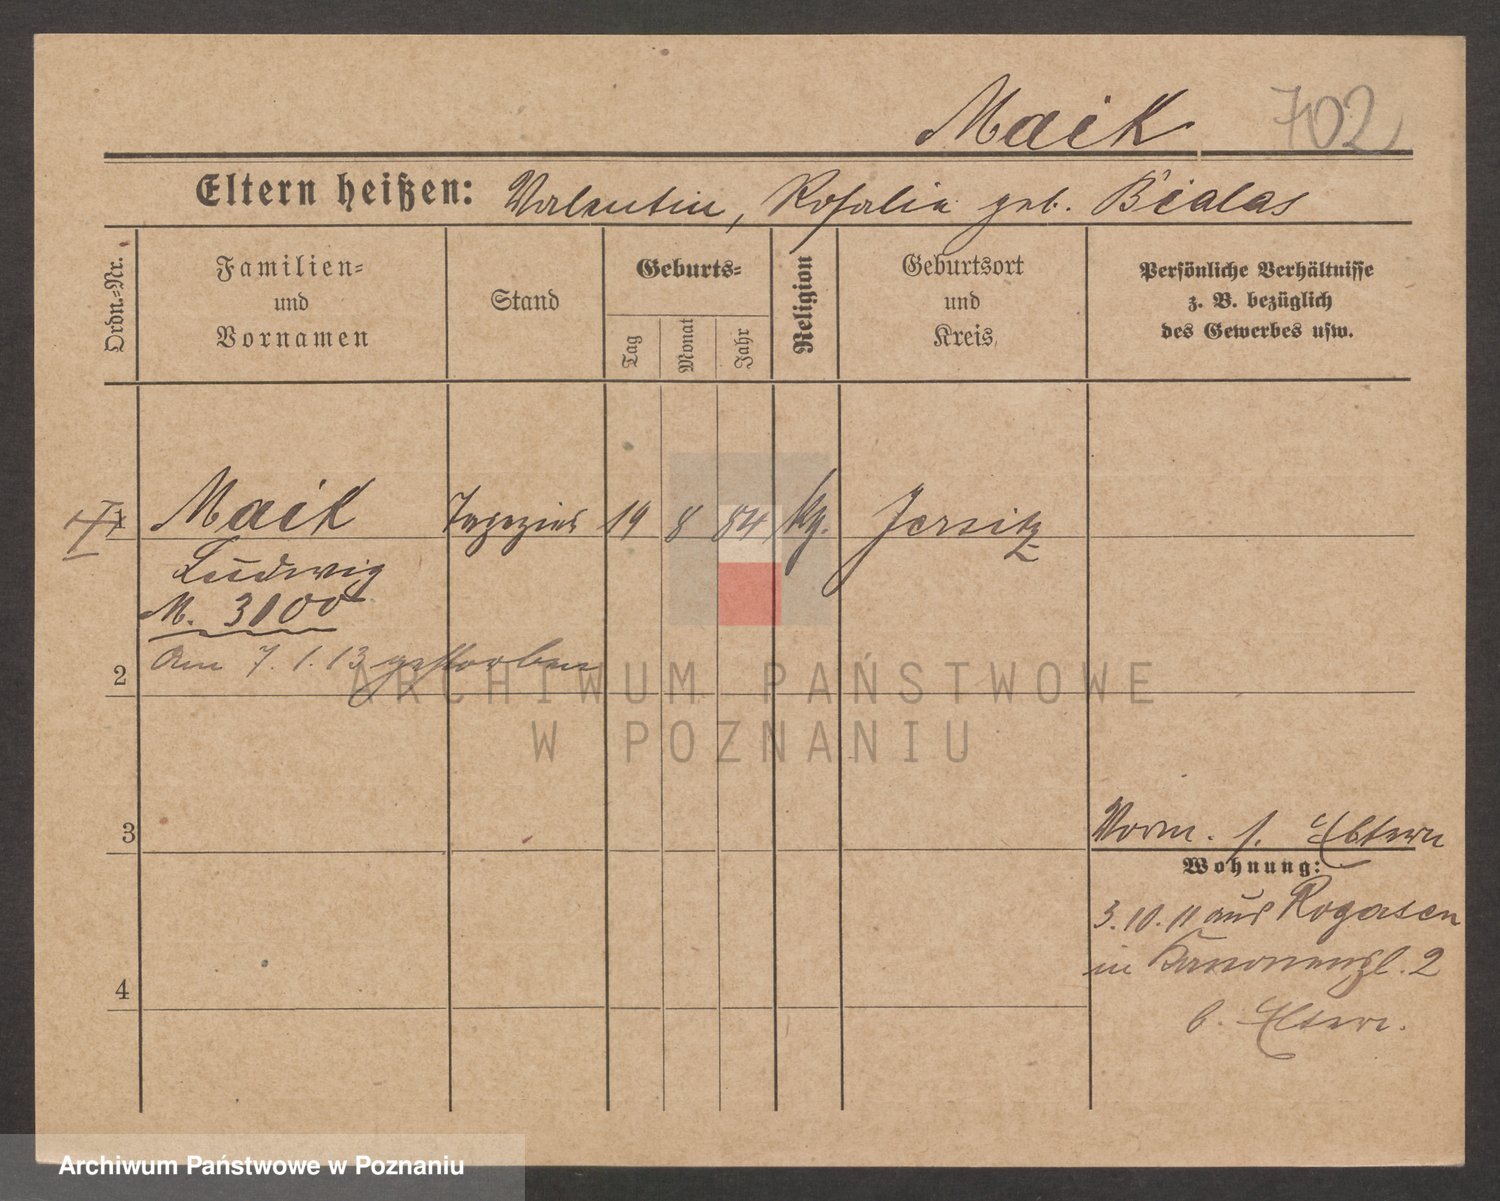 Maik 702
Eltern heißen: Valentin, Rosalie geb. Bialas
Ordn.-Nr.
Familien-
und
Vornamen
Stand
Geburts-
Tag
Monat
Jahr
Religion
Geburtsort
und
Kreis
Persönliche Verhältnisse
z. B. bezüglich
des Gewerbes usw.
1 Maik Tapezier 19 8 84 kg. Jersitz
Ludwig
M. 3100
Am 7.1.13 gestorben
2
ARCHIWUM PAŃSTWOWE
W POZNANIU
3
Vorm. s. Eltern
Wohnung:
3.10.11 aus Rogasen
in Kanonenpl. 2
4
b. Eltern.
Archiwum Państwowe w Poznaniu